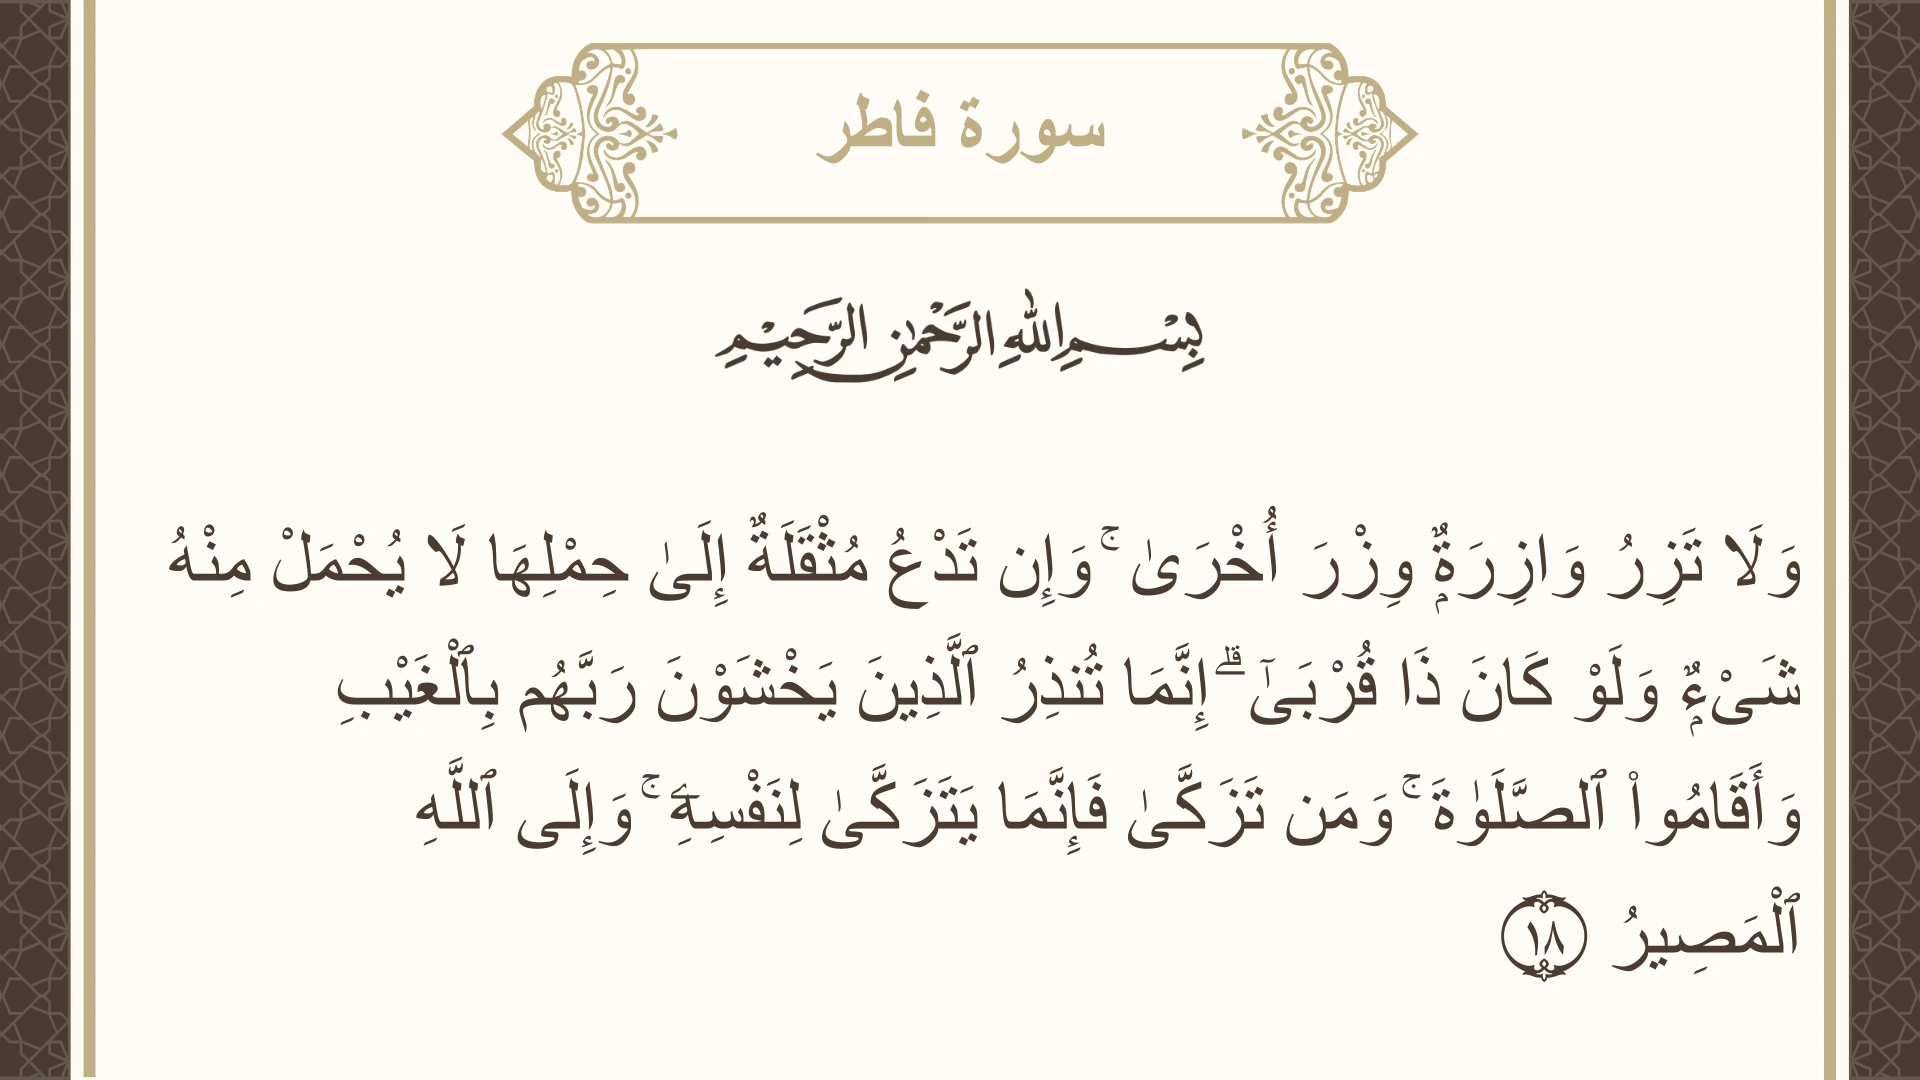 سورة فاطر
بِسْمِ اللهِ الرَّحْمٰنِ الرَّحِيْمِ
وَلَا تَزِرُ وَازِرَةٌۭ وِزْرَ أُخْرَىٰ ۚ وَإِن تَدْعُ مُثْقَلَةٌ إِلَىٰ حِمْلِهَا لَا يُحْمَلْ مِنْهُ
شَىْءٌۭ وَلَوْ كَانَ ذَا قُرْبَىٰٓ ۗ إِنَّمَا تُنذِرُ ٱلَّذِينَ يَخْشَوْنَ رَبَّهُم بِٱلْغَيْبِ
وَأَقَامُوا۟ ٱلصَّلَوٰةَ ۚ وَمَن تَزَكَّىٰ فَإِنَّمَا يَتَزَكَّىٰ لِنَفْسِهِۦ ۚ وَإِلَى ٱللَّهِ
ٱلْمَصِيرُ ١٨